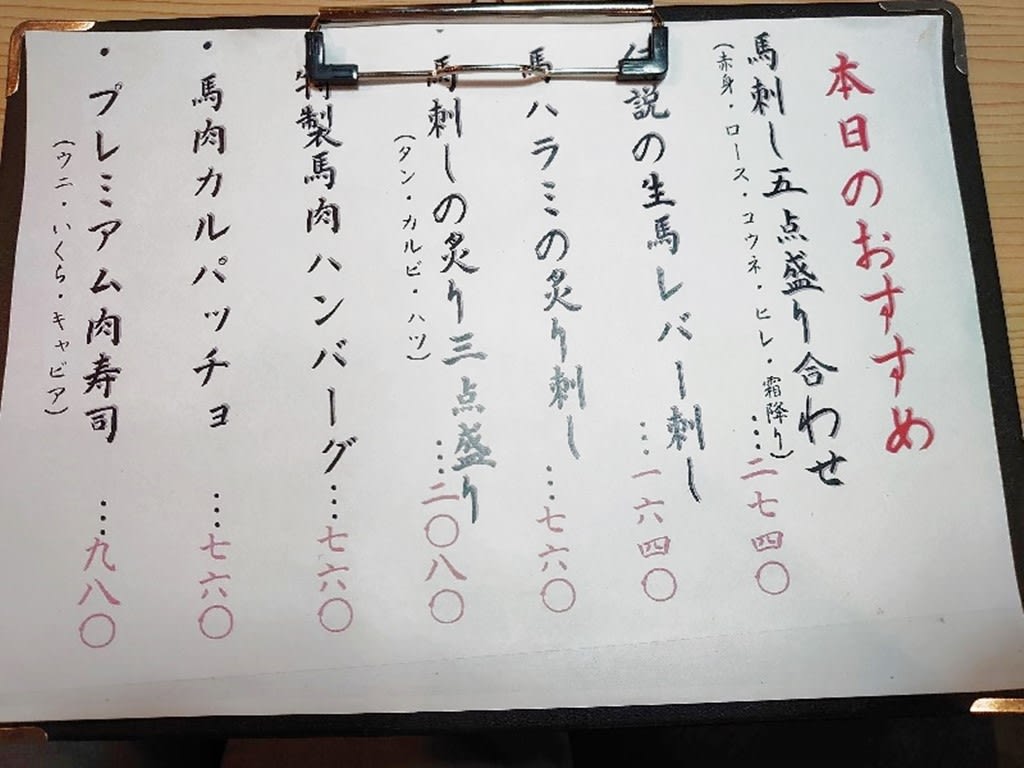 本日のおすすめ
馬刺し五点盛り合わせ
(赤身・ロース・コウネ・ヒレ・霜降り)
…二七四〇
伝説の生馬レバー刺し
…一六四〇
馬ハラミの炙り刺し
…七六〇
馬刺しの炙り三点盛り
(タン・カルビ・ハツ)
…二〇八〇
特製馬肉ハンバーグ…七六〇
・馬肉カルパッチョ …七六〇
・プレミアム肉寿司 …九八〇
(ウニ・いくら・キャビア)